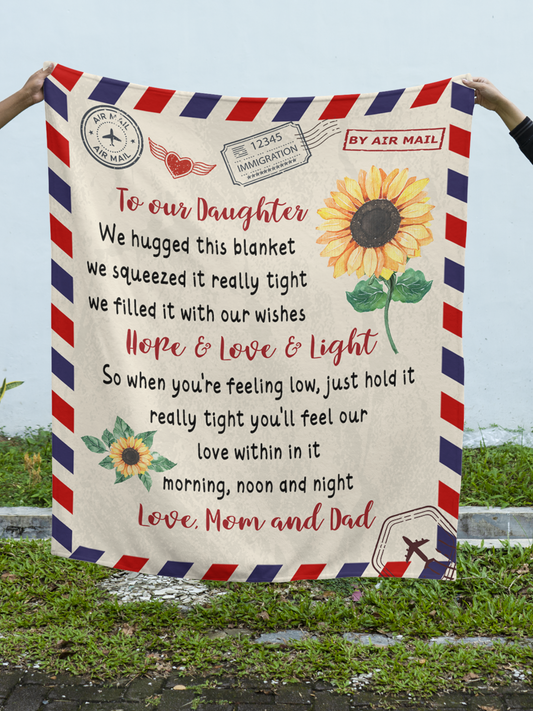 AIR MAIL
AIR MAIL
12345
IMMIGRATION
BY AIR MAIL
To our Daughter
We hugged this blanket
we squeezed it really tight
we filled it with our wishes
Hope & Love & Light
So when you're feeling low, just hold it
really tight you'll feel our
love within in it
morning, noon and night
Love, Mom and Dad